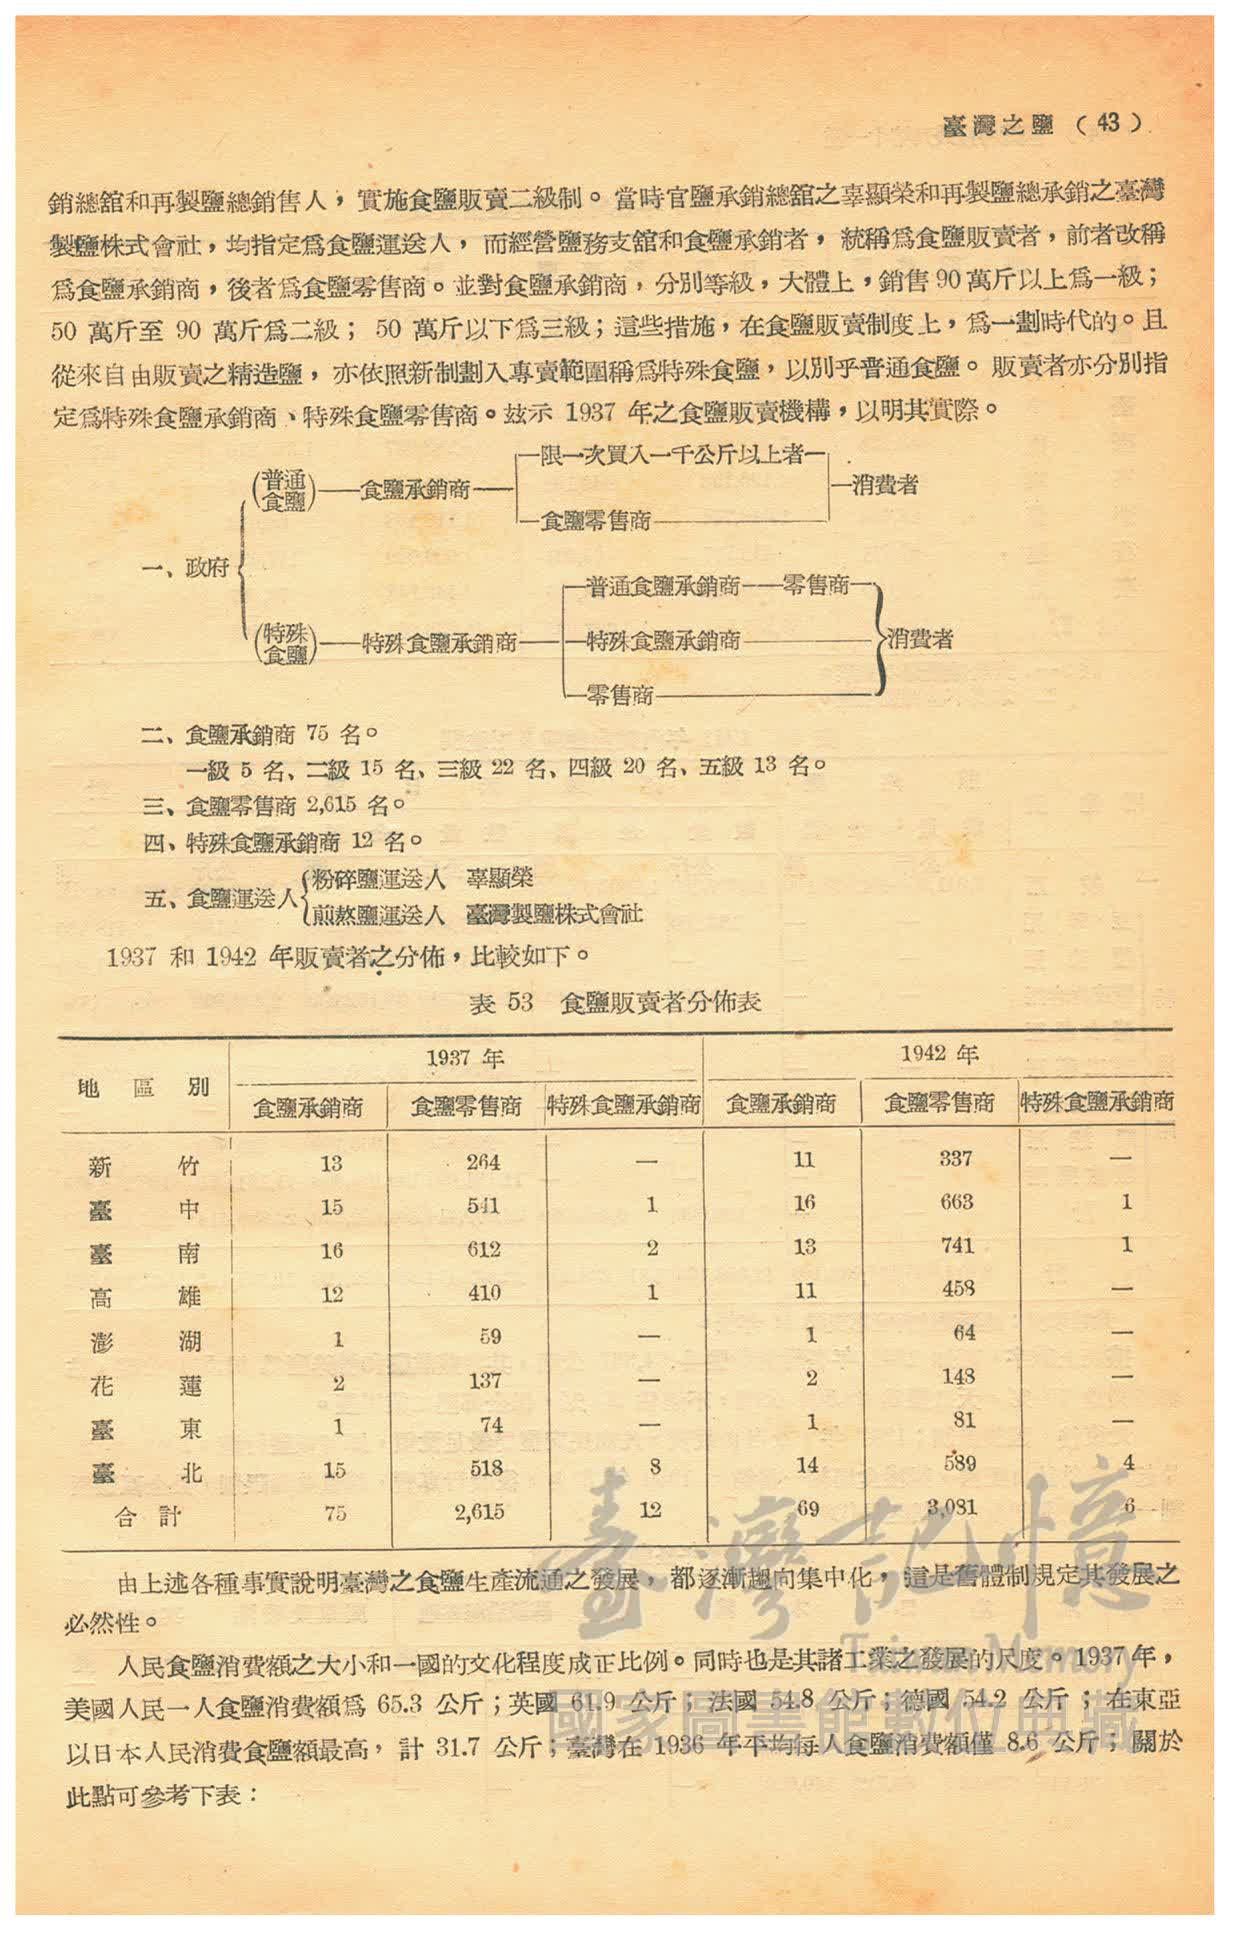 臺灣之鹽（43）
銷總舘和再製鹽總銷售人，實施食鹽販賣二級制。當時官鹽承銷總舘之辜顯榮和再製鹽總承銷之臺灣
製鹽株式會社，均指定爲食鹽運送人，而經營鹽務支舘和食鹽承銷者，統稱爲食鹽販賣者，前者改稱
爲食鹽承銷商，後者爲食鹽零售商。並對食鹽承銷商，分別等級，大體上，銷售90萬斤以上爲一級；
50 萬斤至 90 萬斤爲二級； 50 萬斤以下爲三級；這些措施，在食鹽販賣制度上，爲一劃時代的。且
從來自由販賣之精造鹽，亦依照新制劃入專賣範圍稱爲特殊食鹽，以別乎普通食鹽。販賣者亦分別指
定爲特殊食鹽承銷商、特殊食鹽零售商。玆示 1937 年之食鹽販賣機構，以明其實際。
一、政府
（普通食鹽）——食鹽承銷商——限一次買入一千公斤以上者——消費者
食鹽零售商
（特殊食鹽）——特殊食鹽承銷商——普通食鹽承銷商——零售商
特殊食鹽承銷商——消費者
零售商
二、食鹽承銷商 75 名。
一級 5 名、二級 15 名、三級 22 名、四級 20 名、五級 13 名。
三、食鹽零售商 2,615 名。
四、特殊食鹽承銷商 12 名。
五、食鹽運送人
粉碎鹽運送人 辜顯榮
煎熬鹽運送人 臺灣製鹽株式會社
1937 和 1942 年販賣者之分佈，比較如下。
表 53 食鹽販賣者分佈表
地區別 1937 年 1942 年
食鹽承銷商 食鹽零售商 特殊食鹽承銷商 食鹽承銷商 食鹽零售商 特殊食鹽承銷商
新竹 13 264 — 11 337 —
臺中 15 541 1 16 663 1
臺南 16 612 2 13 741 1
高雄 12 410 1 11 458 —
澎湖 1 59 — 1 64 —
花蓮 2 137 — 2 148 —
臺東 1 74 — 1 81 —
臺北 15 518 8 14 589 4
合計 75 2,615 12 69 3,081 6
由上述各種事實說明臺灣之食鹽生產流通之發展，都逐漸趨向集中化，這是舊體制規定其發展之
必然性。
人民食鹽消費額之大小和一國的文化程度成正比例。同時也是其諸工業之發展的尺度。1937年，
美國人民一人食鹽消費額爲 65.3 公斤；英國 61.9 公斤；法國 54.8 公斤；德國 54.2 公斤；在東亞
以日本人民消費食鹽額最高，計 31.7 公斤；臺灣在 1936 年平均每人食鹽消費額僅 8.6 公斤；關於
此點可參考下表：
臺灣記憶
Taiwan Memory
國家圖書館數位典藏